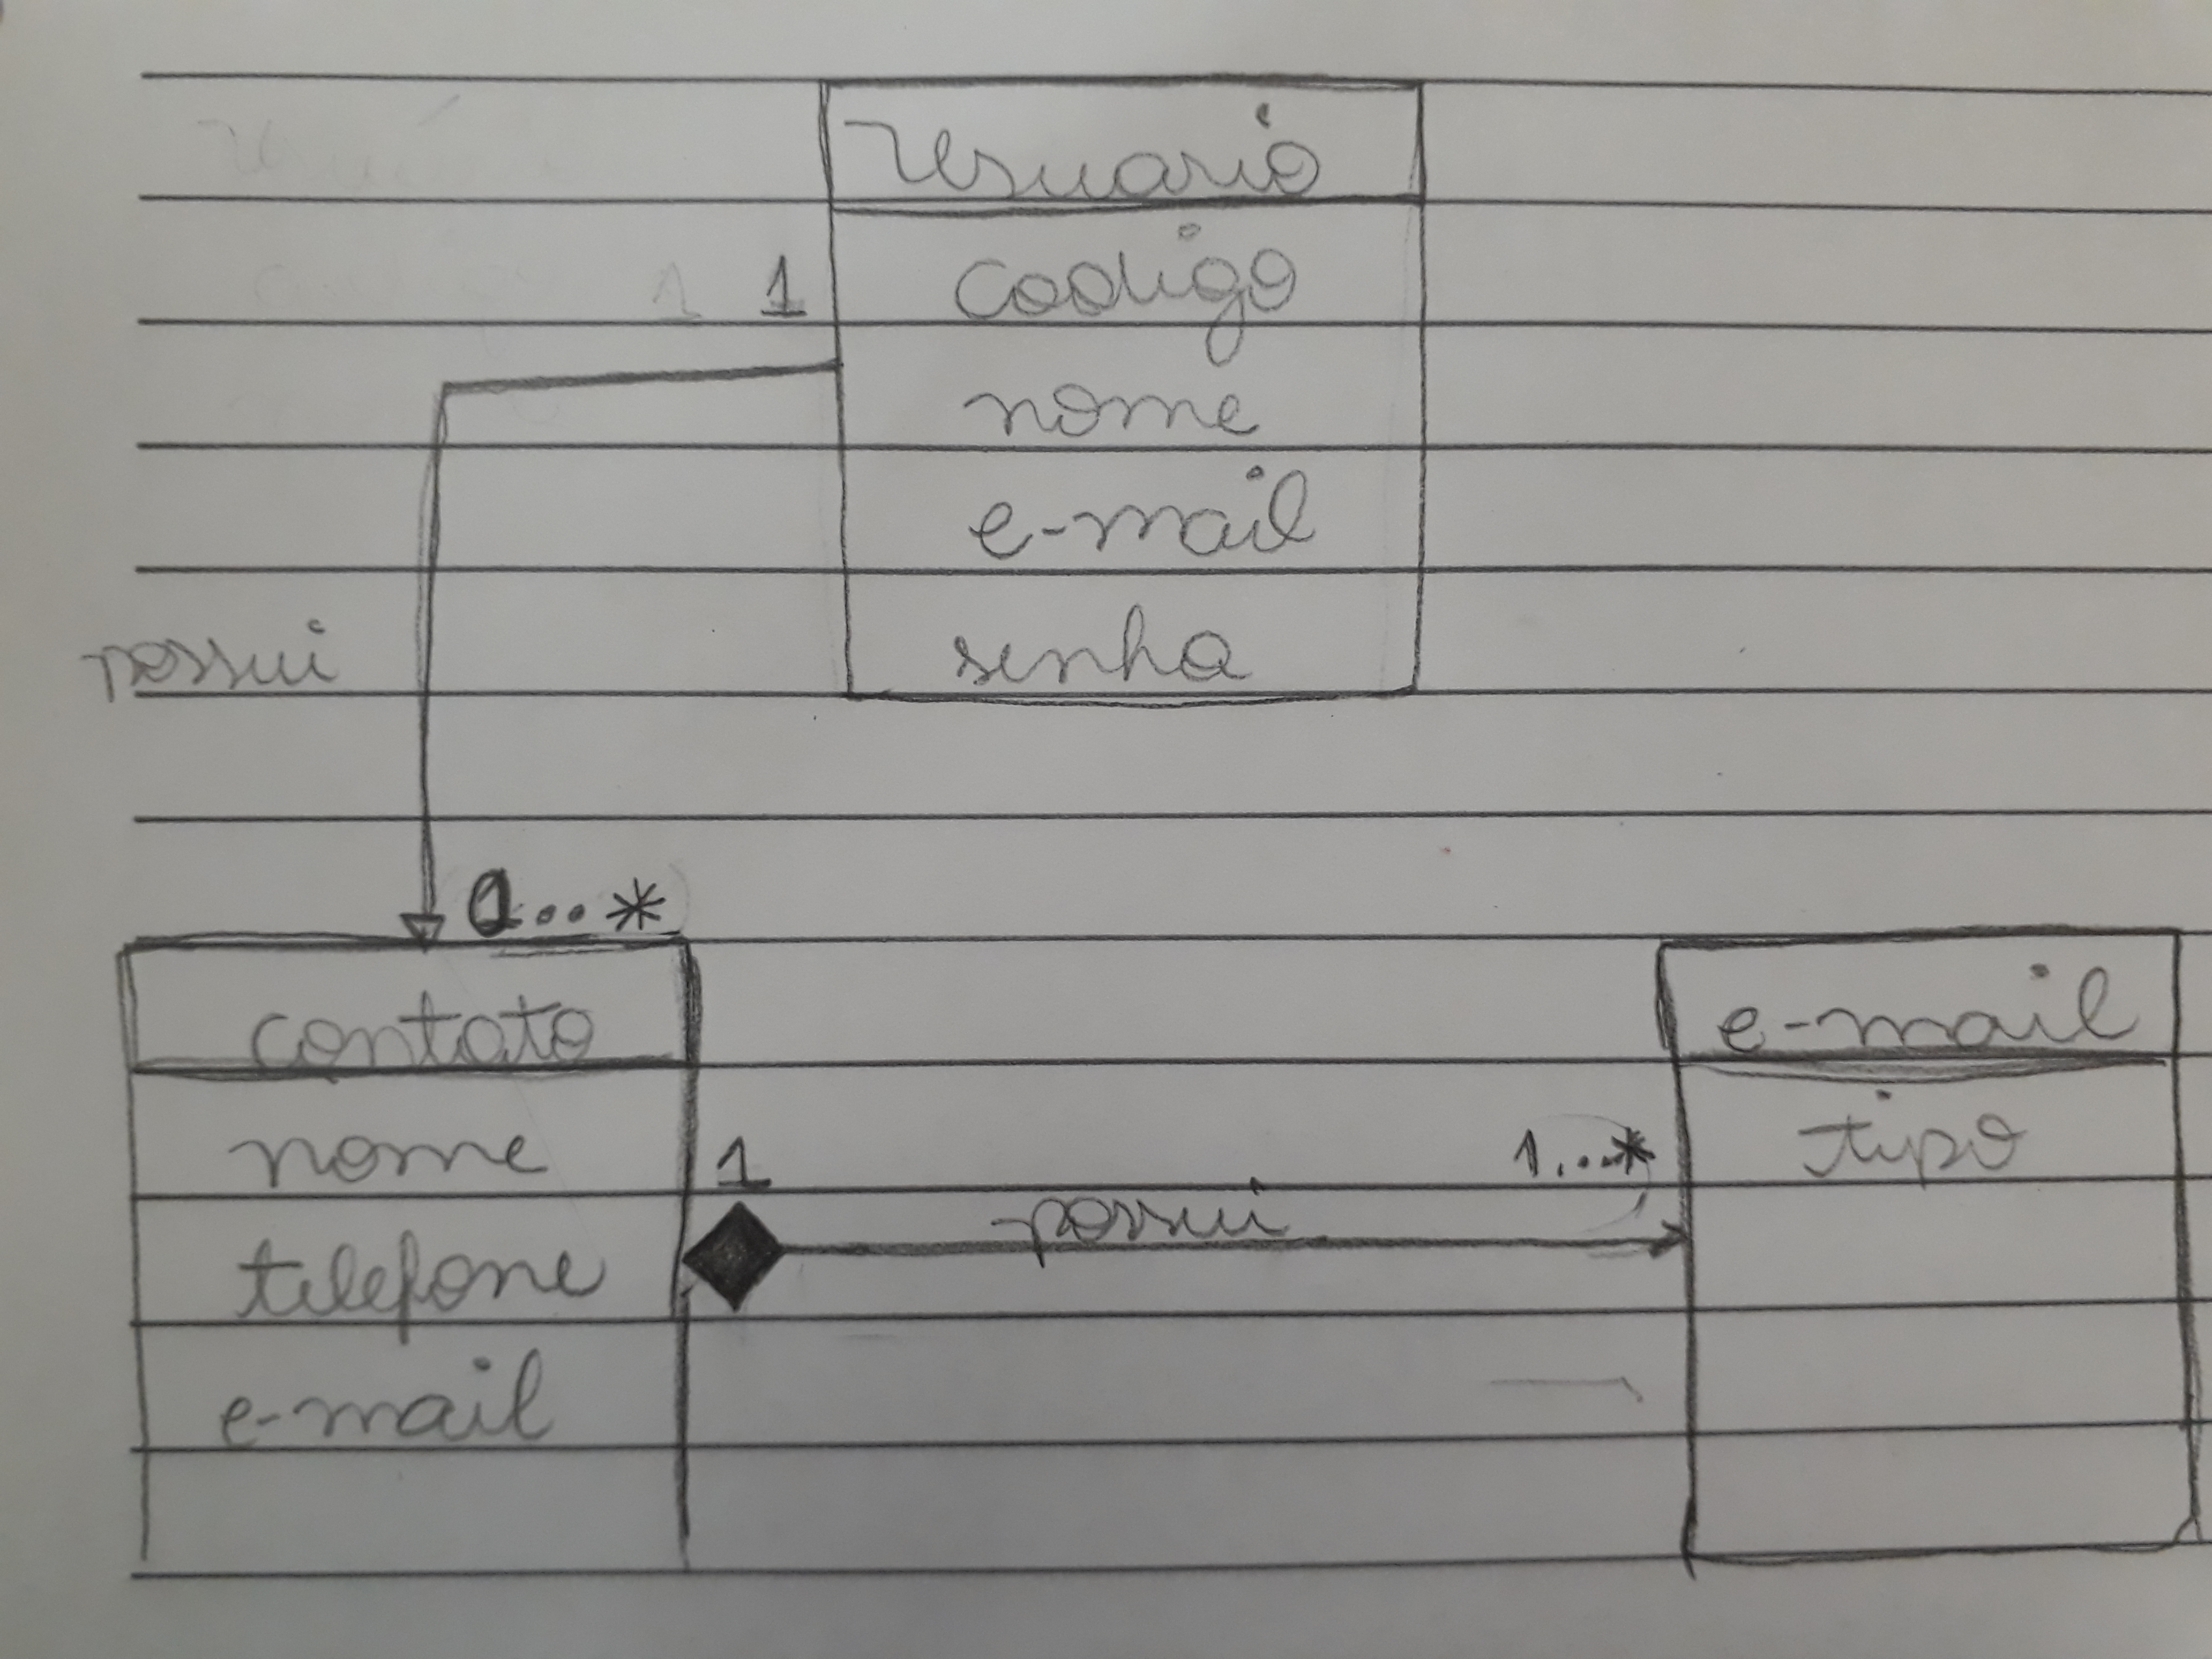 Usuario
1
codigo
nome
e-mail
senha
possui
contato
nome
telefone
e-mail
1
possui
1...*
e-mail
tipo